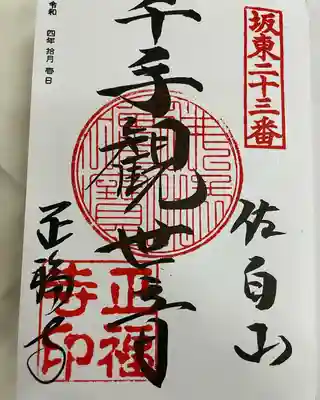 坂東二十三番
佐白山
千手観世音
正福寺
令和 四年 拾月 壱日
正福
寺印